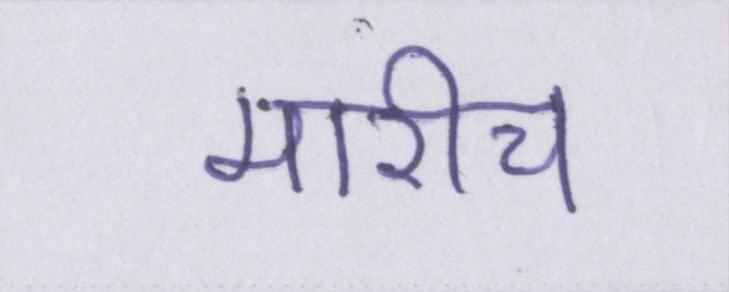 मारीच